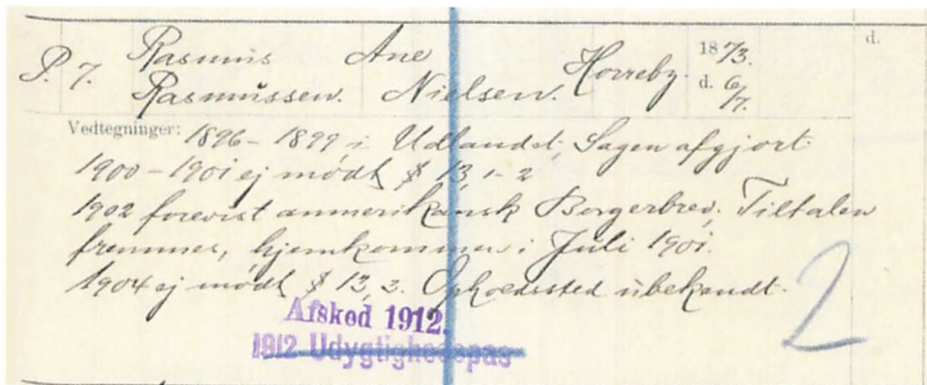 P. 7. Rasmus Ane Horreby. 18 73. d.
Rasmussen. Nielsen. d. 6/7.
Vedtegninger: 1896-1899 i Udlandet, Sagen afgjort
1900-1901 ej mødt § 13, 1-2
1902 forevist ammerikansk Borgerbrev, Tiltalen
frammes, hjemkommen i Juli 1901.
1904 ej mødt § 13, 3. Opholdssted ubekendt.
2
Afsked 1912.
1912 Udygtighedspas